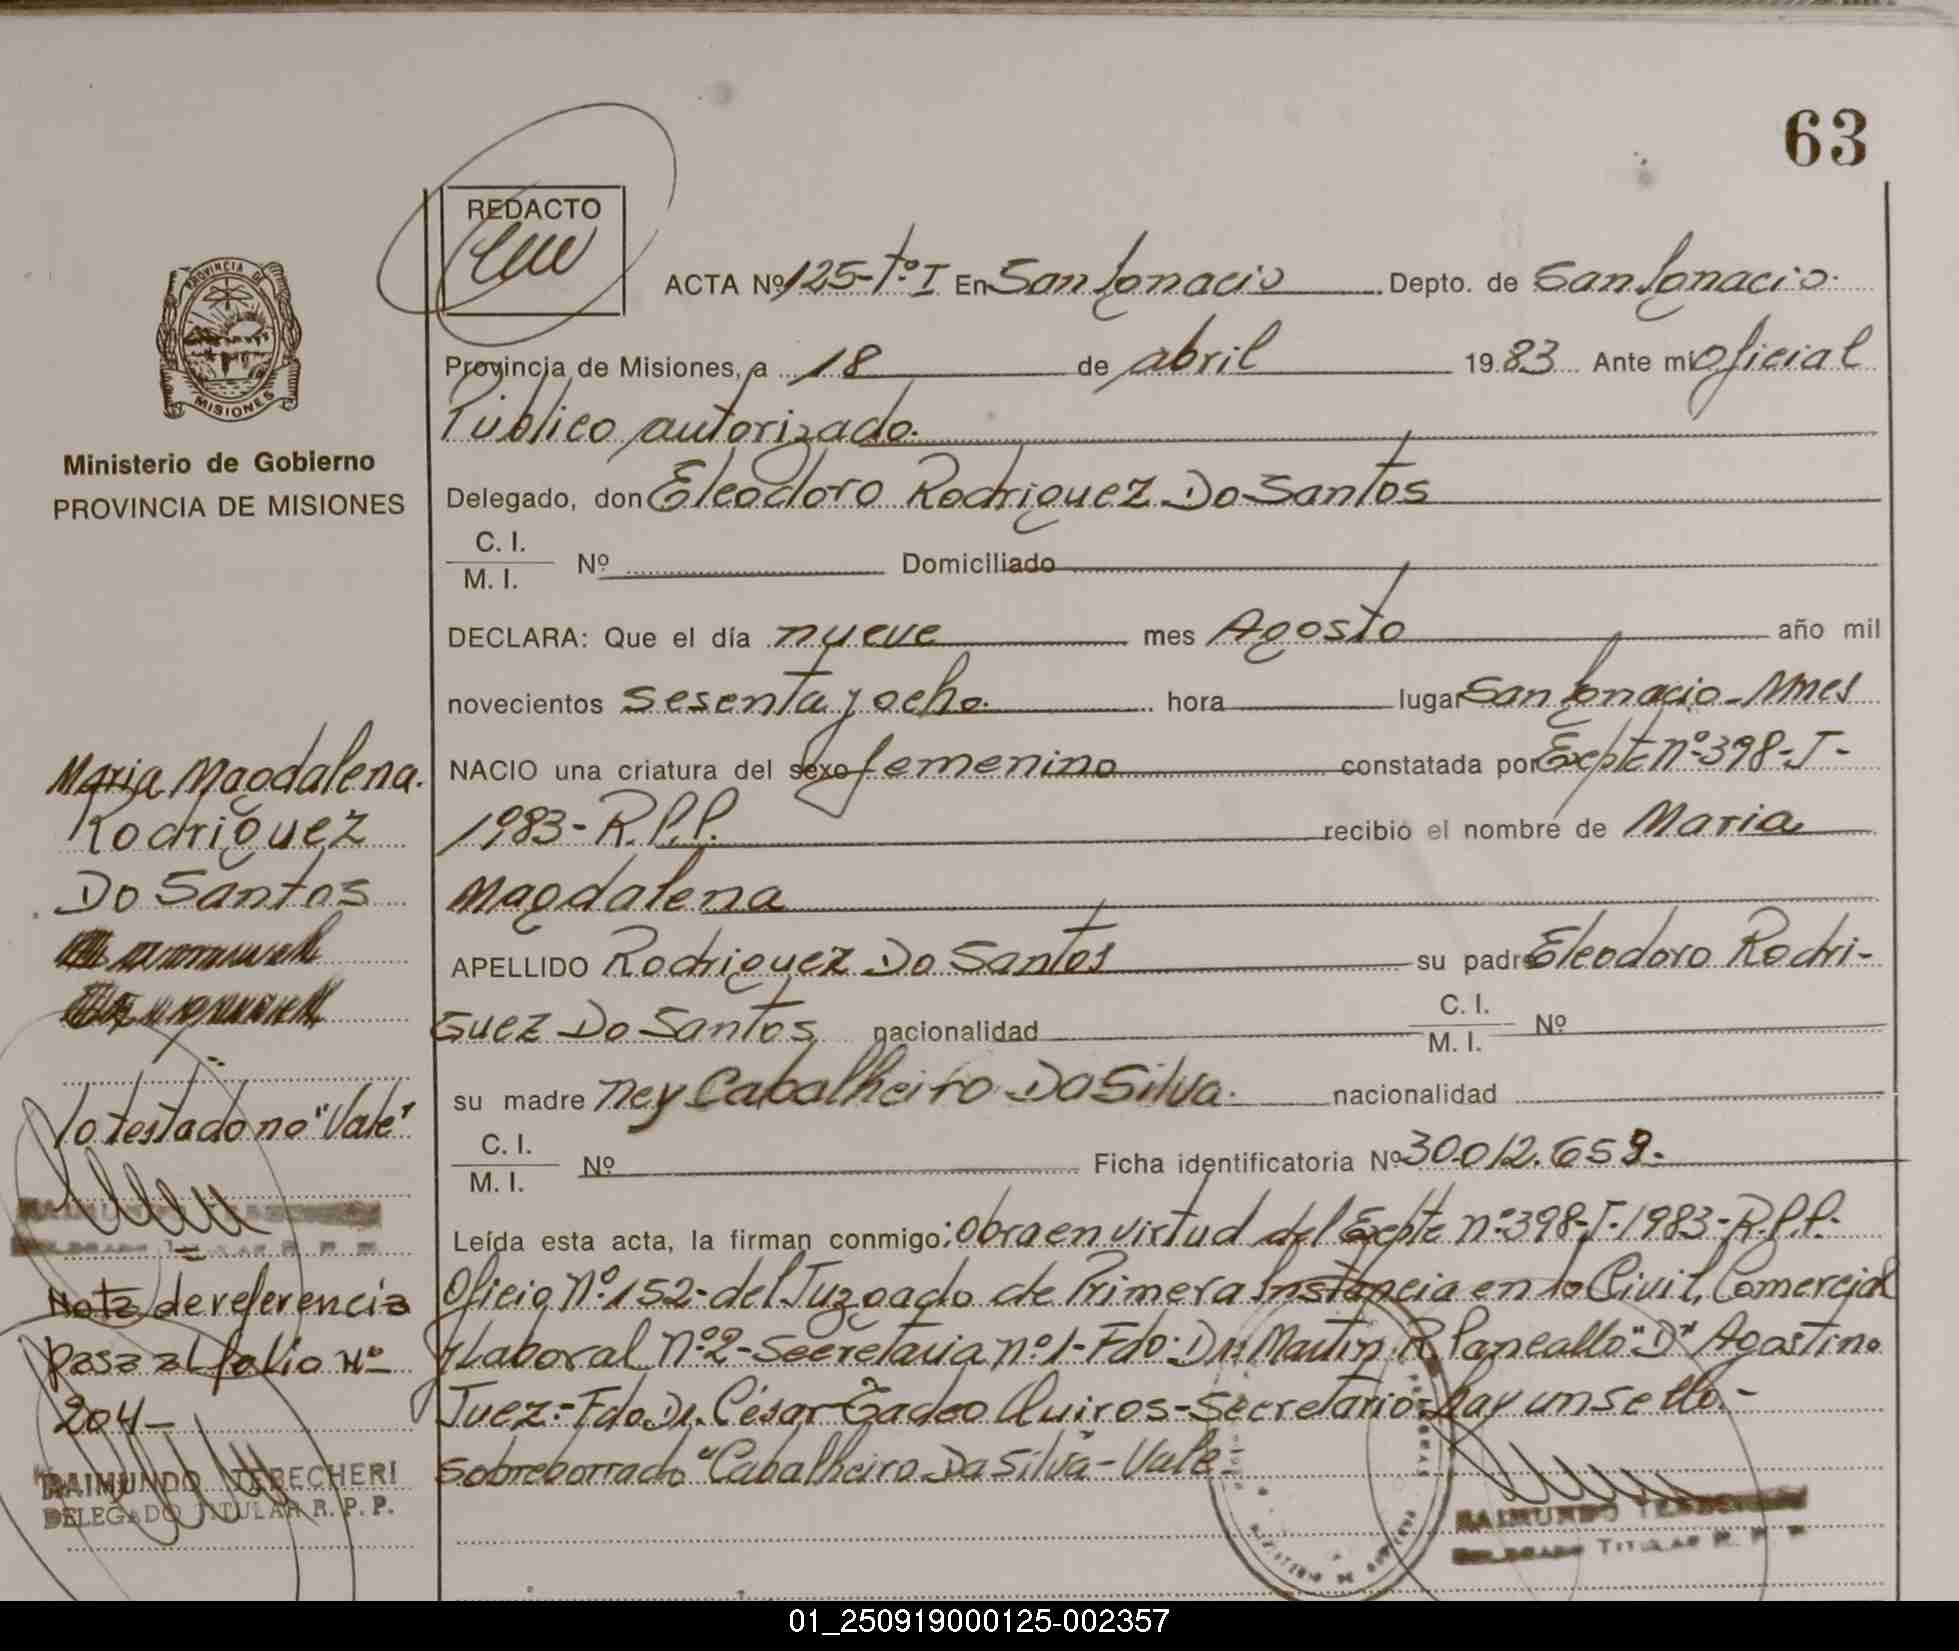 63
REDACTO
PROVINCIA DE
MISIONES
Ministerio de Gobierno
PROVINCIA DE MISIONES
ACTA Nº 125-Tº I En San Ignacio Depto. de San Ignacio.
Provincia de Misiones, a 18 de abril 1983 Ante mi Oficial
Público autorizado.
Delegado, don Eleodoro Rodriguez Do Santos
C. I.
M. I. Nº Domiciliado
DECLARA: Que el día nueve mes Agosto año mil
novecientos sesenta y ocho. hora lugar San Ignacio-Mnes
NACIO una criatura del sexo femenino constatada por Expte nº 398-T-
1983-R.P.P. recibio el nombre de Maria
Magdalena
APELLIDO Rodriguez Do Santos su padre Eleodoro Rodri-
guez Do Santos nacionalidad C. I. M. I. Nº
su madre Ney Cabalheiro Da Silva. nacionalidad
C. I.
M. I. Nº Ficha identificatoria Nº 30.012.659.
Leída esta acta, la firman conmigo; obra en virtud del Expte nº 398-T-1983-R.P.P.-
Oficio Nº 152-del Juzgado de Primera Instancia en lo Civil, Comercial
y Laboral nº 2-Secretaria nº 1-Fdo: Dr. Martin R. "D" Agostino
Juez.-Fdo. Dr. César Tadeo Quiros-Secretario-hay un sello.-
Sobreborrado "Cabalheiro Da Silva-Vale
Maria Magdalena.
Rodriguez
Do Santos
lo testado no "Vale"
Nota de referencia
pasa al folio Nº
204-
RAIMUNDO TEBECHERI
DELEGADO TITULAR R. P. P.
RAIMUNDO TEBECHERI
DELEGADO TITULAR R. P. P.
01_250919000125-002357